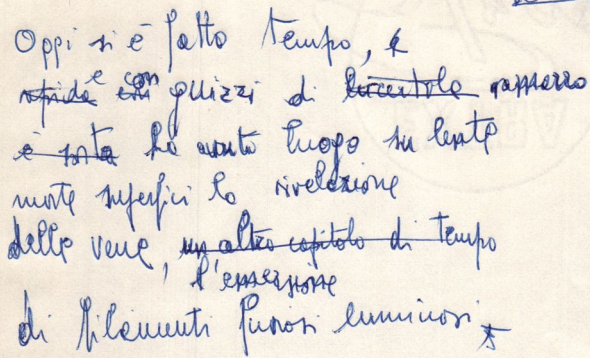 Oggi si è fatto tempo, è
rapida e con guizzi di lucertola
è sorta ha avuto luogo su lente
morte superfici la rivelazione
delle vene, un altro capitolo di tempo
l'emersione
di filamenti furiosi luminosi